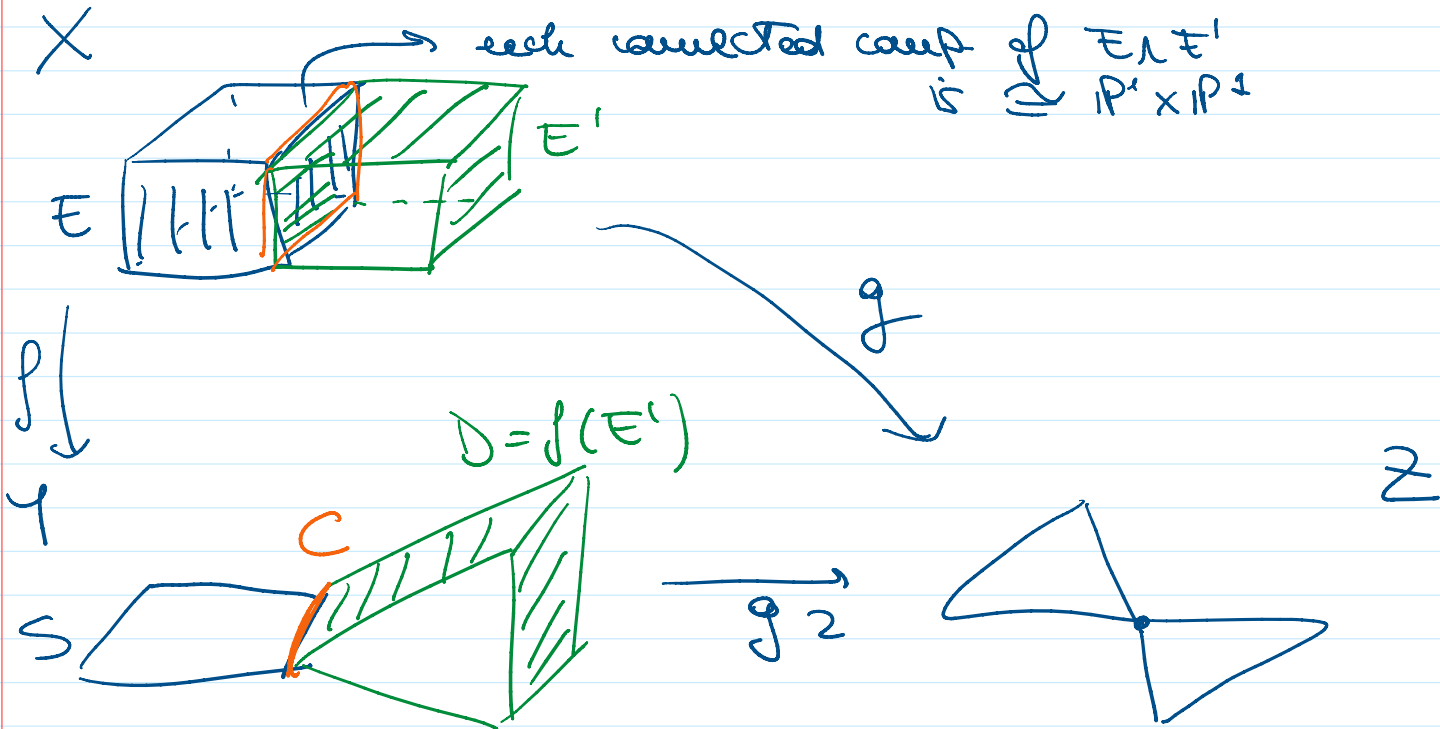 X
each connected comp of E ∩ E'
is ≅ P¹ × P¹
E'
E
g
f
D = f(E')
Z
Y
C
S
g2